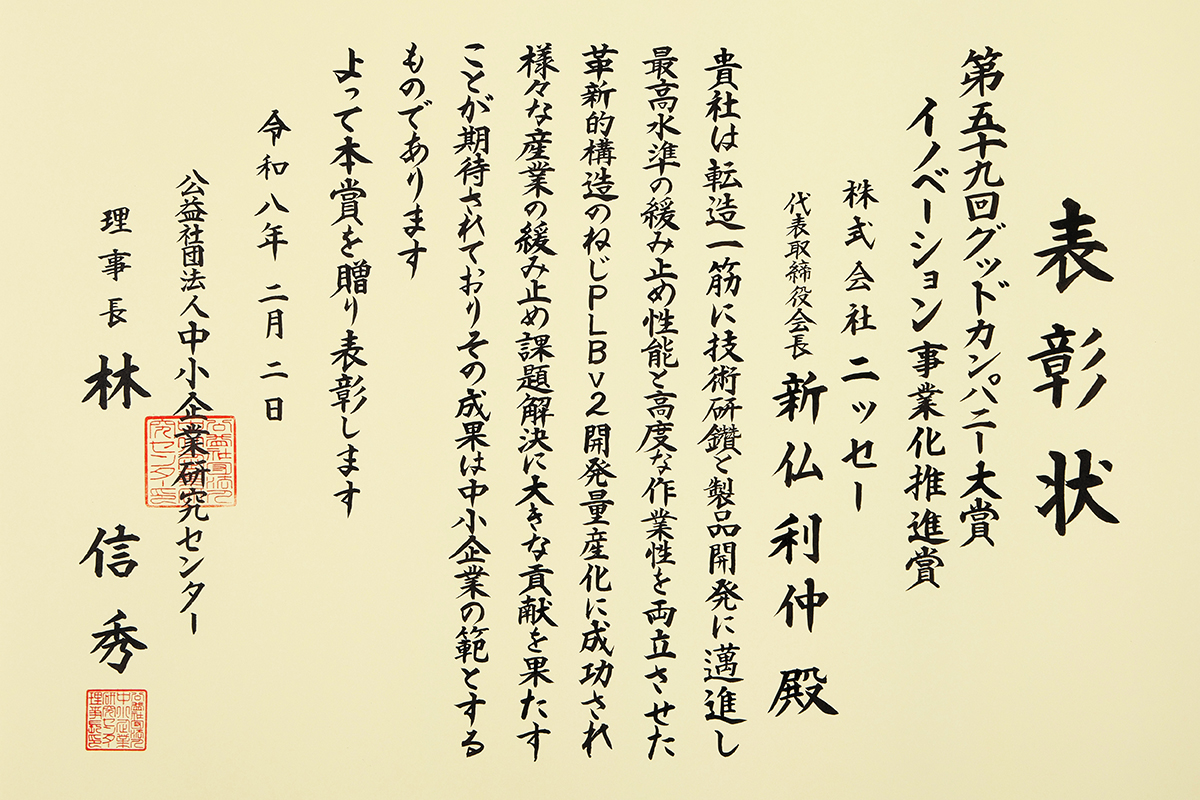 表彰状
第五十九回グッドカンパニー大賞
イノベーション事業化推進賞
株式会社ニッセー
代表取締役会長 新仏利仲殿
貴社は転造一筋に技術研鑽と製品開発に邁進し
最高水準の緩み止め性能と高度な作業性を両立させた
革新的構造のねじPLBv2開発量産化に成功され
様々な産業の緩み止め課題解決に大きな貢献を果たす
ことが期待されておりその成果は中小企業の範とする
ものであります
よって本賞を贈り表彰します
令和八年 二月 二日
公益社団法人中小企業研究センター
理事長 林 信秀